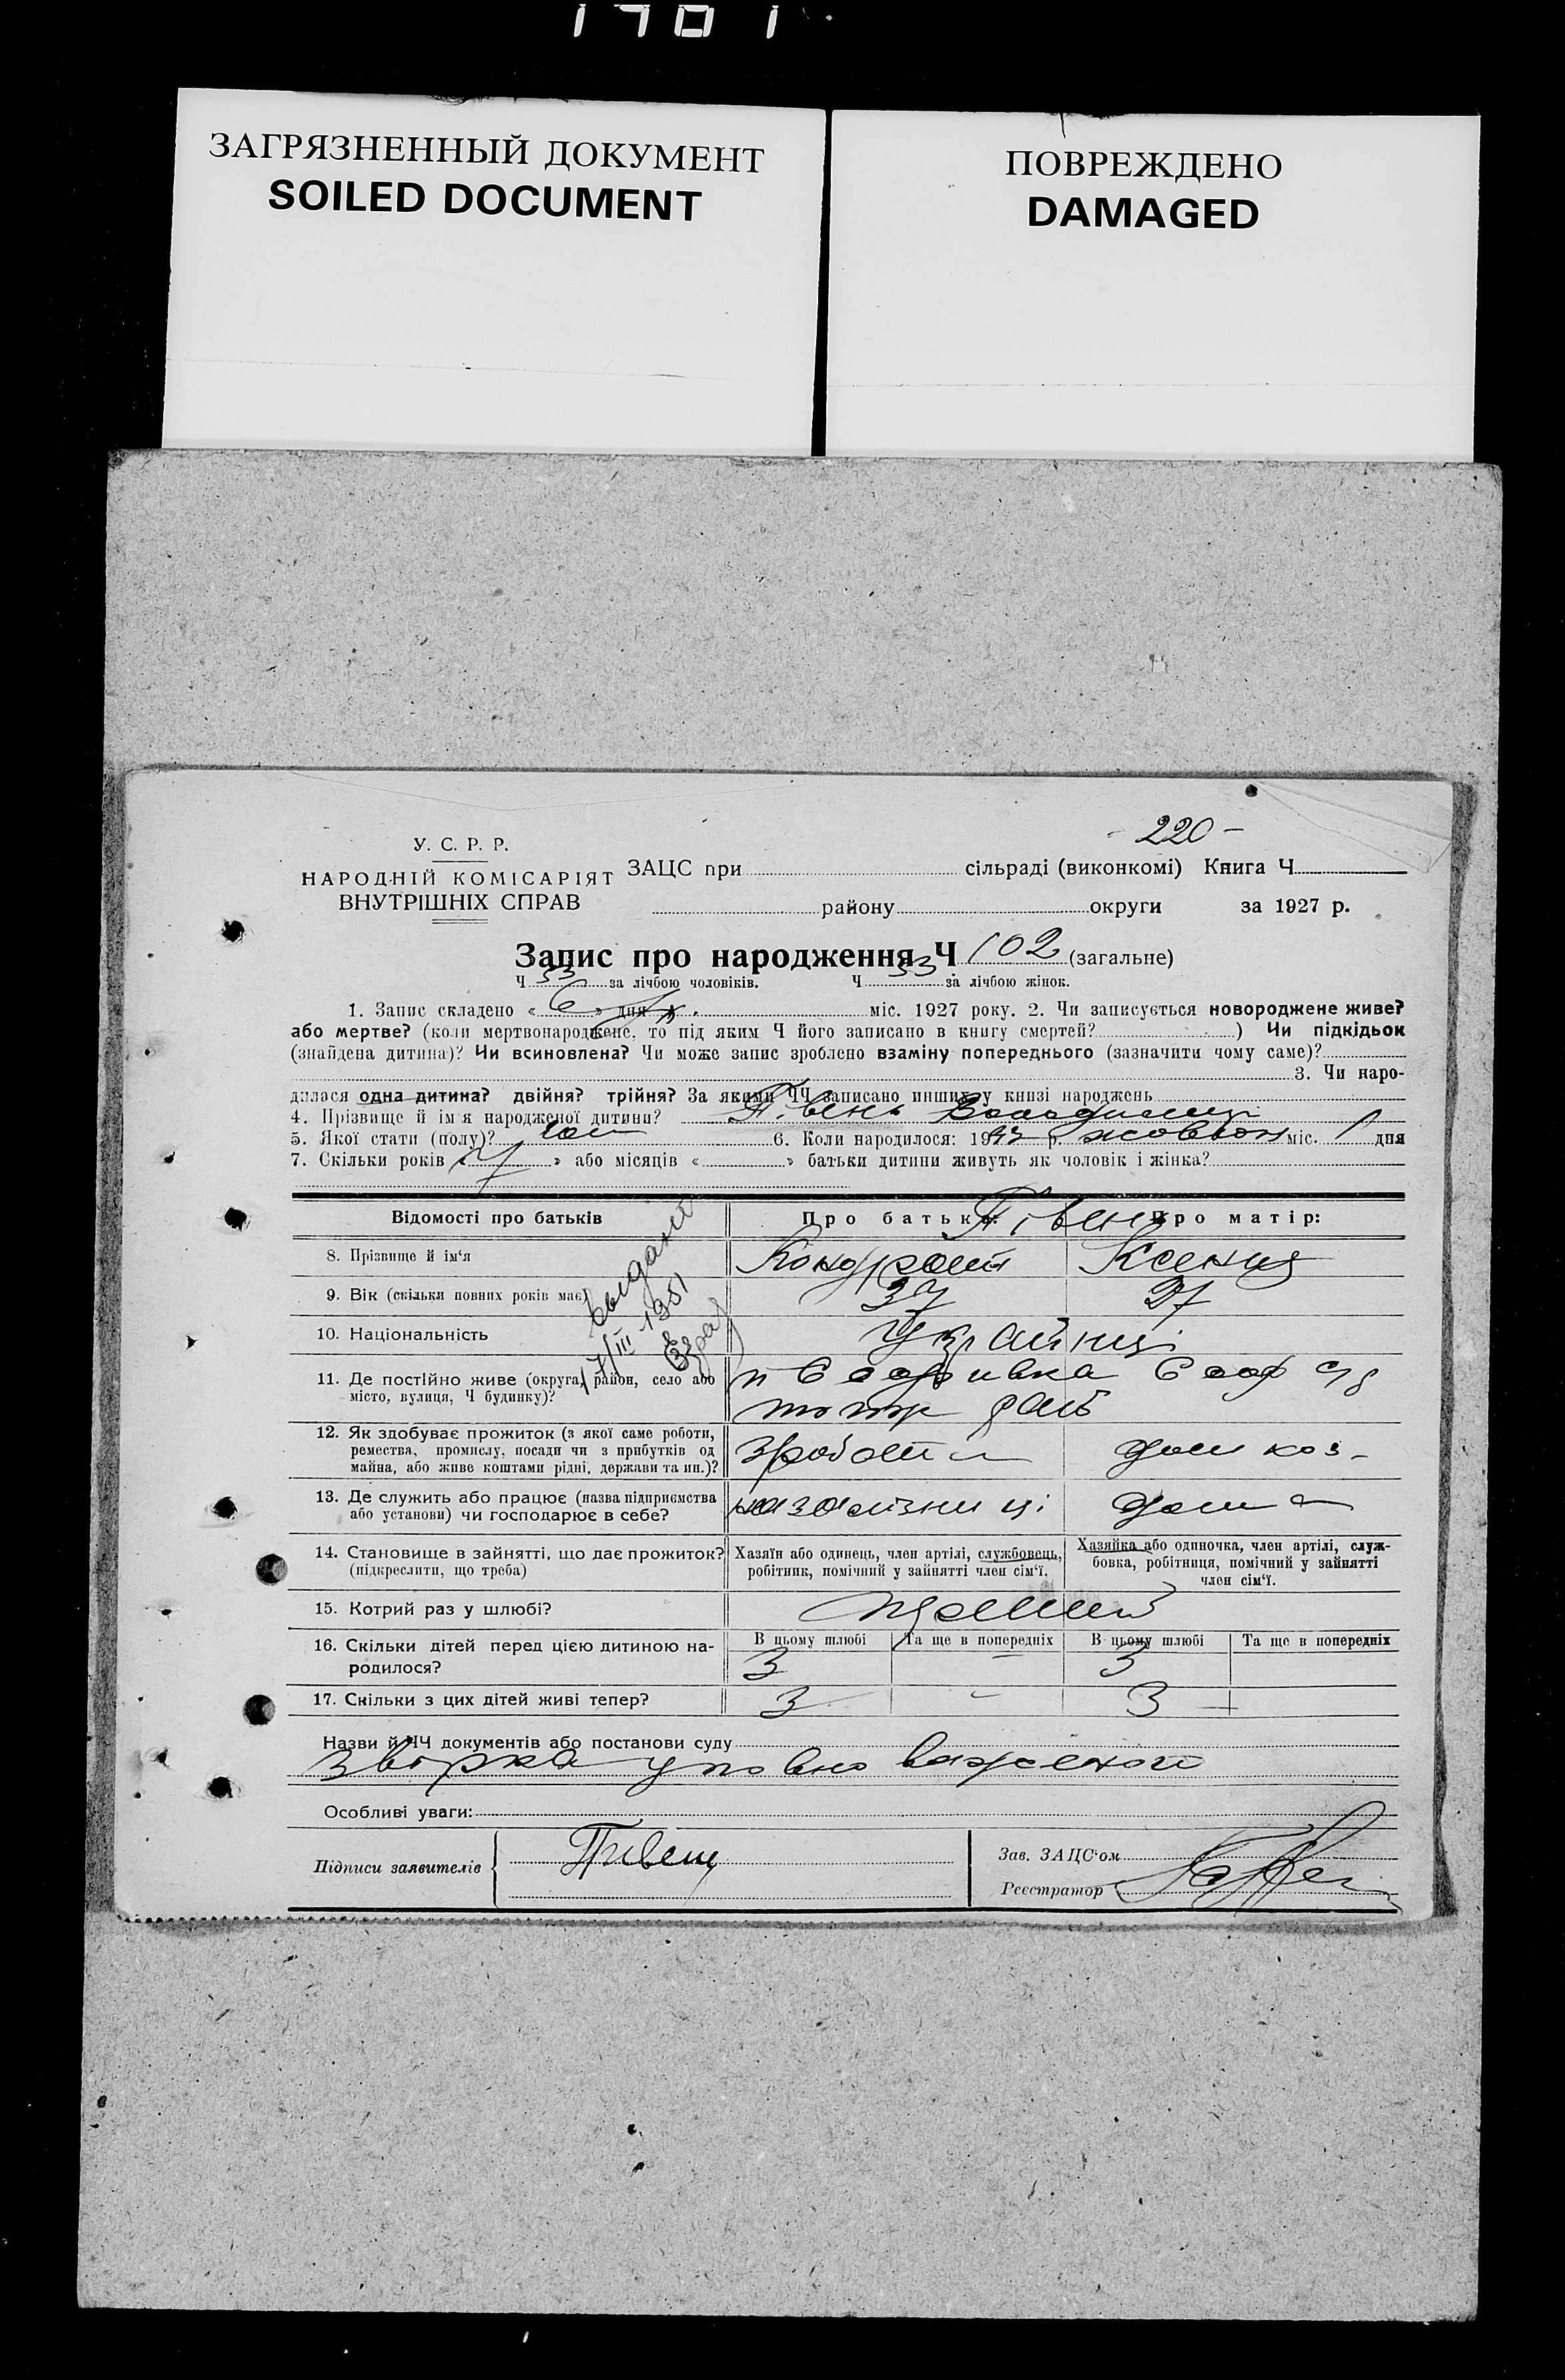 ЗАГРЯЗНЕННЫЙ ДОКУМЕНТ
SOILED DOCUMENT
ПОВРЕЖДЕНО
DAMAGED
- 220 -
У. С. Р. Р.
НАРОДНІЙ КОМІСАРІЯТ
ВНУТРІШНІХ СПРАВ
ЗАЦС при сільраді (виконкомі) Книга Ч.
району округи за 1927 р.
Запис про народження Ч 102 (загальне)
Ч 53 за лічбою чоловіків. Ч за лічбою жінок.
1. Запис складено « 6 » дня міс. 1927 року. 2. Чи записується новороджене живе?
або мертве? (коли мертвонароджене, то під яким Ч його записано в книгу смертей? ) Чи підкідьок
(знайдена дитина)? Чи всиновлена? Чи може запис зроблено взаміну попереднього (зазначити чому саме)?
3. Чи наро-
дилася одна дитина? двійня? трійня? За якими ЧЧ записано инших у книзі народжень
4. Прізвище й ім'я народженої дитини? Півень Володимир
5. Якої стати (полу)? чол 6. Коли народилося: 19 р. жовтен міс. 1 дня
7. Скільки років « 7 » або місяців « » батьки дитини живуть як чоловік і жінка?
Відомості про батьків
Про батька: Півень Про матір:
8. Прізвище й ім‘я Кондрат Ксенія
9. Вік (скільки повних років має) 37 27
10. Національність Українці
11. Де постійно живе (округа, район, село або
місто, вулиця, Ч будинку)?
12. Як здобуває прожиток (з якої саме роботи,
ремества, промислу, посади чи з прибутків од
майна, або живе коштами рідні, держави та ин.)?
зроботи дом хоз-
13. Де служить або працює (назва підприємства
або установи) чи господарює в себе?
на залізниці дома
14. Становище в зайнятті, що дає прожиток?
(підкреслити, що треба)
Хазяїн або одинець, член артілі, службовець,
робітник, помічний у зайнятті член сім‘ї.
Хазяйка або одиночка, член артілі, служ-
бовка, робітниця, помічний у зайнятті
член сім‘ї.
15. Котрий раз у шлюбі?
16. Скільки дітей перед цією дитиною на-
родилося?
В цьому шлюбі Та ще в попередніх В цьому шлюбі Та ще в попередніх
3 - 3
17. Скільки з цих дітей живі тепер? 3 - 3 -
Назви й ЧЧ документів або постанови суду
звірка уповноваженого
Особливі уваги:
Підписи заявителів Пивень
Зав. ЗАЦС‘ом
Реєстратор
выдано
17/III 1951